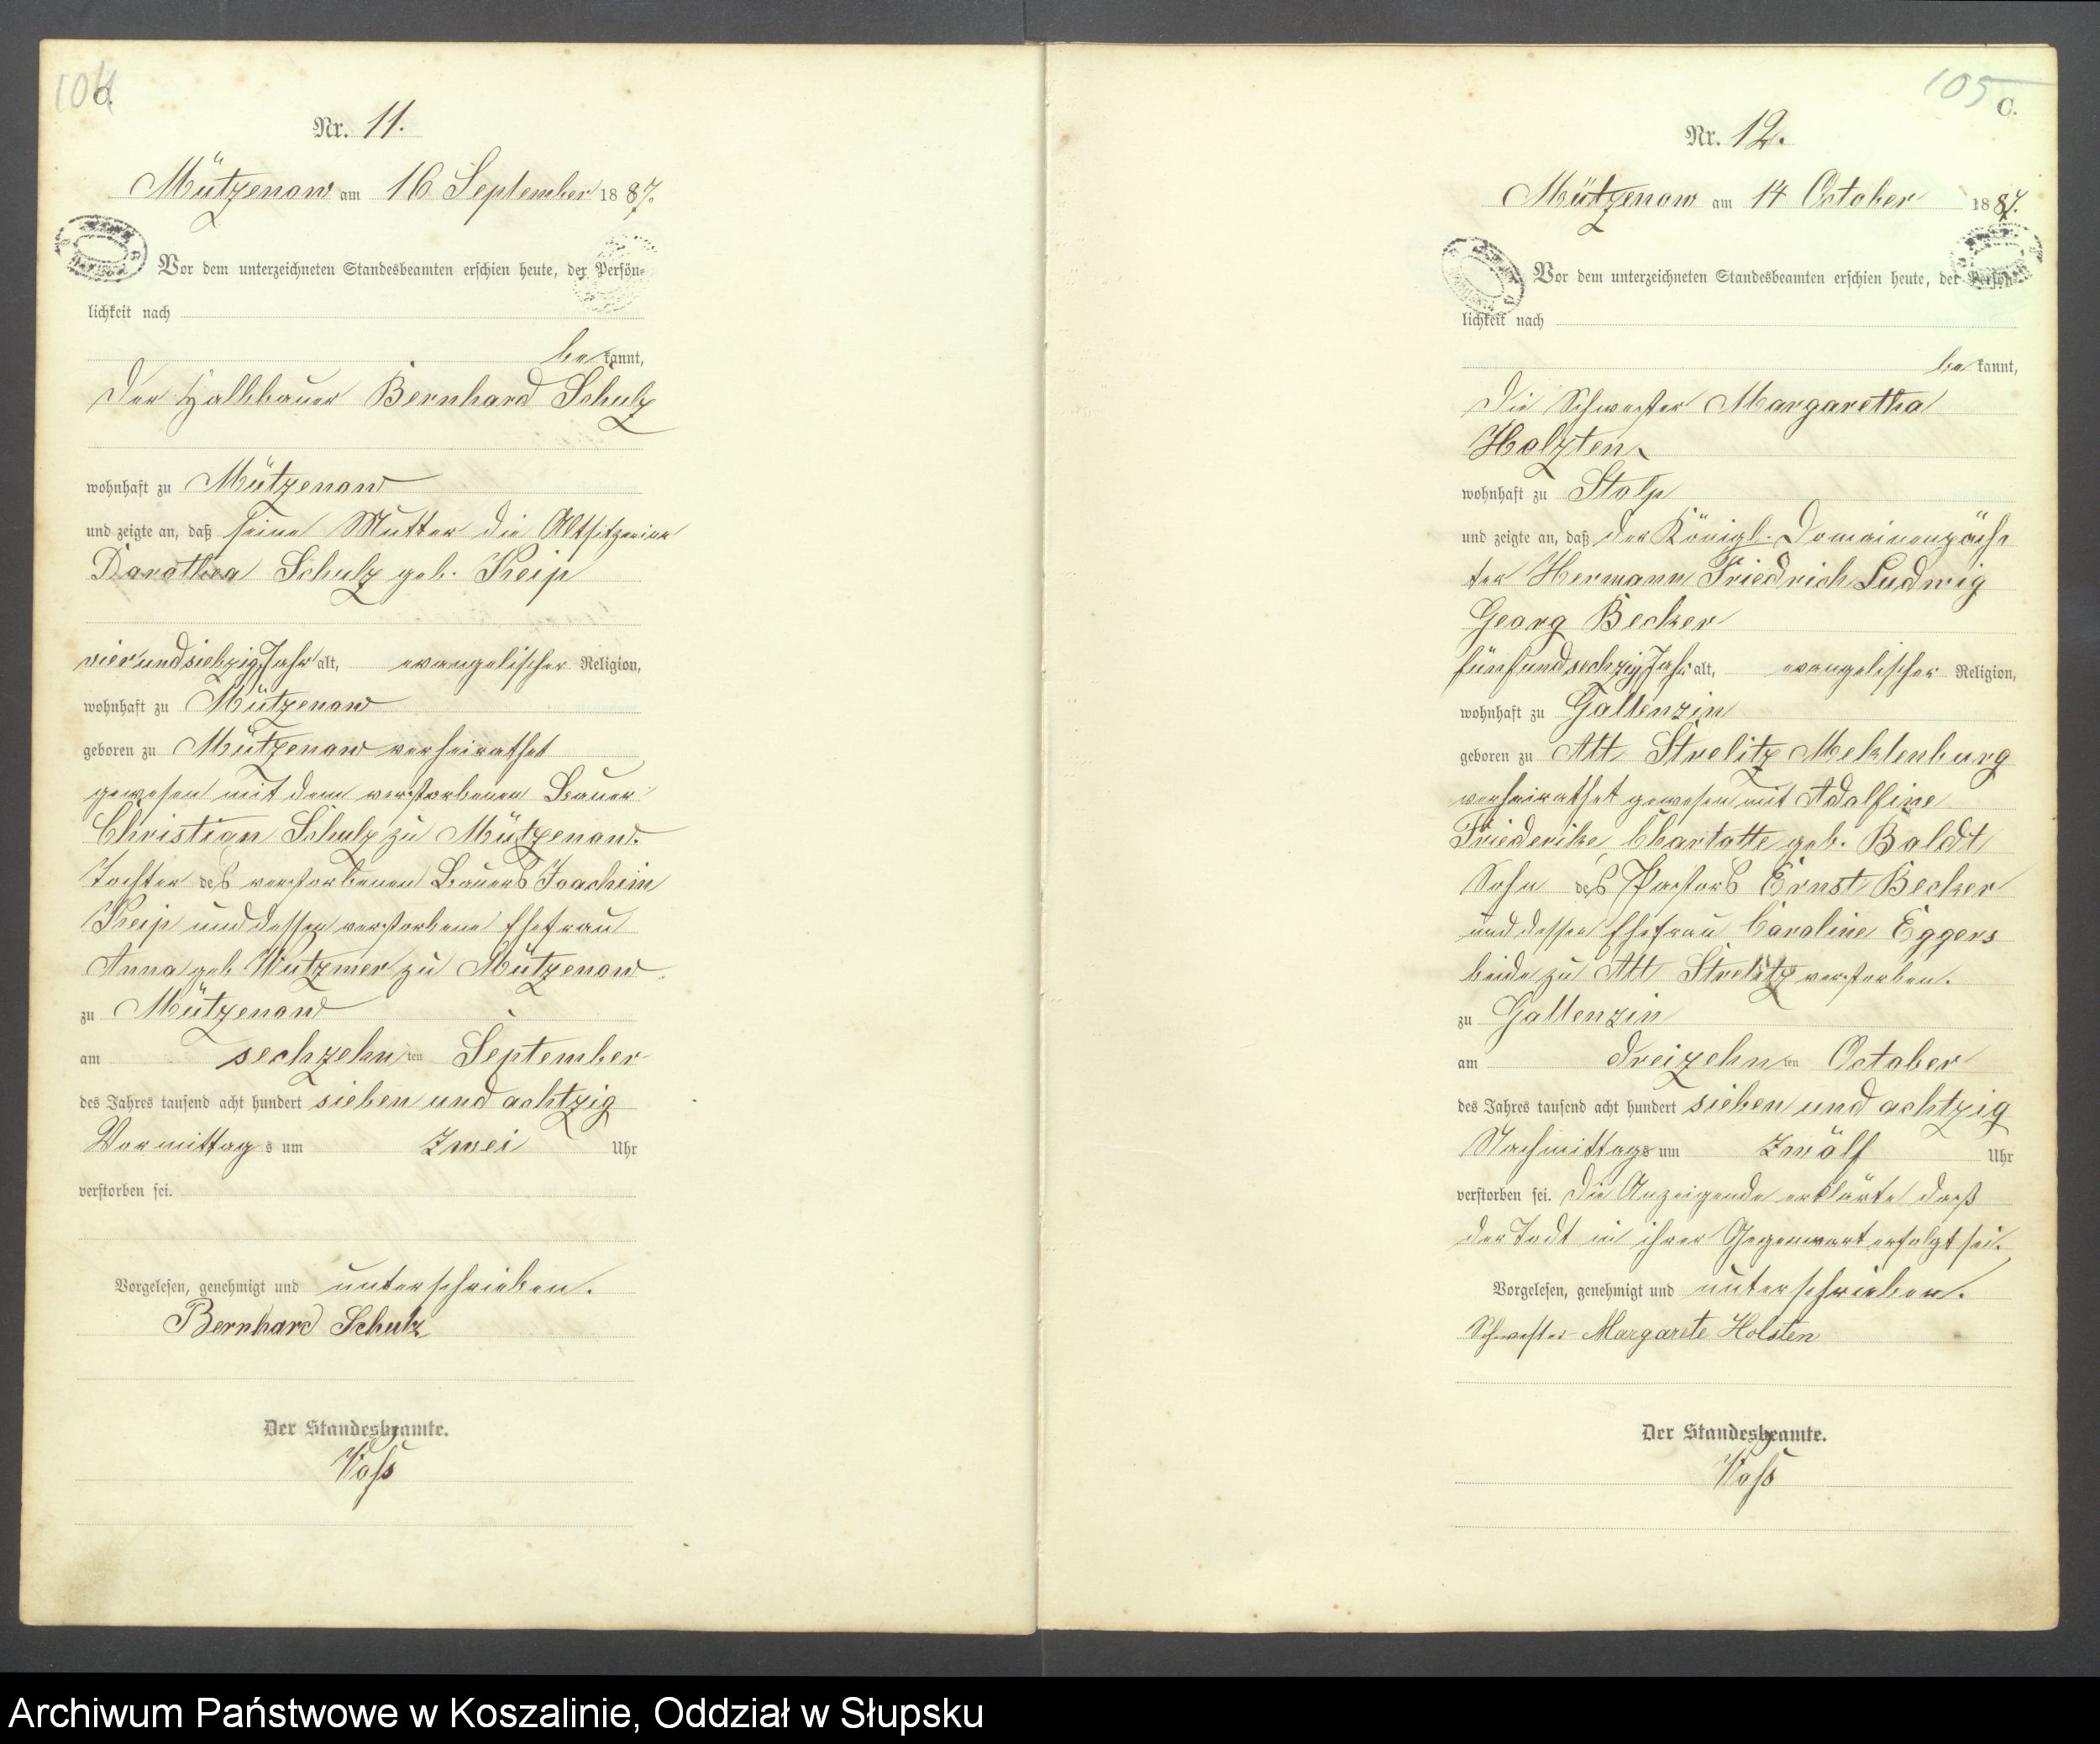 104
C.
Nr. 11.
Mützenow am 16 September 1887.
Vor dem unterzeichneten Standesbeamten erschien heute, der Persön-
lichkeit nach
be kannt,
der Halbbauer Bernhard Schulz
wohnhaft zu Mützenow
und zeigte an, daß seine Mutter die Altsitzerinn
Dorothea Schulz geb. Keip
vierundsiebzig Jahr alt, evangelischer Religion,
wohnhaft zu Mützenow
geboren zu Mützenow verheirathet
gewesen mit dem verstorbenen Bauer
Christian Schulz zu Mützenow.
Tochter des verstorbenen Bauers Joachim
Keip und dessen verstorbene Ehefrau
Anna geb Wutzmer zu Mützenow
zu Mützenow
am sechzehn ten September
des Jahres tausend acht hundert sieben und achtzig
Vormittag s um zwei Uhr
verstorben sei.
Vorgelesen, genehmigt und unterschrieben.
Bernhard Schulz
Der Standesbeamte.
Voss
105
C.
Nr. 12.
Mützenow am 14 October 1887.
Vor dem unterzeichneten Standesbeamten erschien heute, der Persön-
lichkeit nach
be kannt,
die Schwester Margaretha
Holzten
wohnhaft zu Stolp
und zeigte an, daß der Königl. Domainenpäch
ter Hermann Friedrich Ludwig
Georg Becker
fünfundsechzig Jahr alt, evangelischer Religion,
wohnhaft zu Gallenzin
geboren zu Alt Strelitz Meklenburg
verheirathet gewesen mit Adolfine
Friederike Charlotte geb. Boldt
Sohn des Pastors Ernst Becker
und dessen Ehefrau Caroline Eggers
beide zu Alt Strelitz verstorben.
zu Gallenzin
am dreizehn ten October
des Jahres tausend acht hundert sieben und achtzig
Nachmittags um zwölf Uhr
verstorben sei. Die Anzeigende erklärte daß
der Todt in ihrer Gegenwart erfolgt sei.
Vorgelesen, genehmigt und unterschrieben.
Schwester Margarete Holsten
Der Standesbeamte.
Voss
Archiwum Państwowe w Koszalinie, Oddział w Słupsku